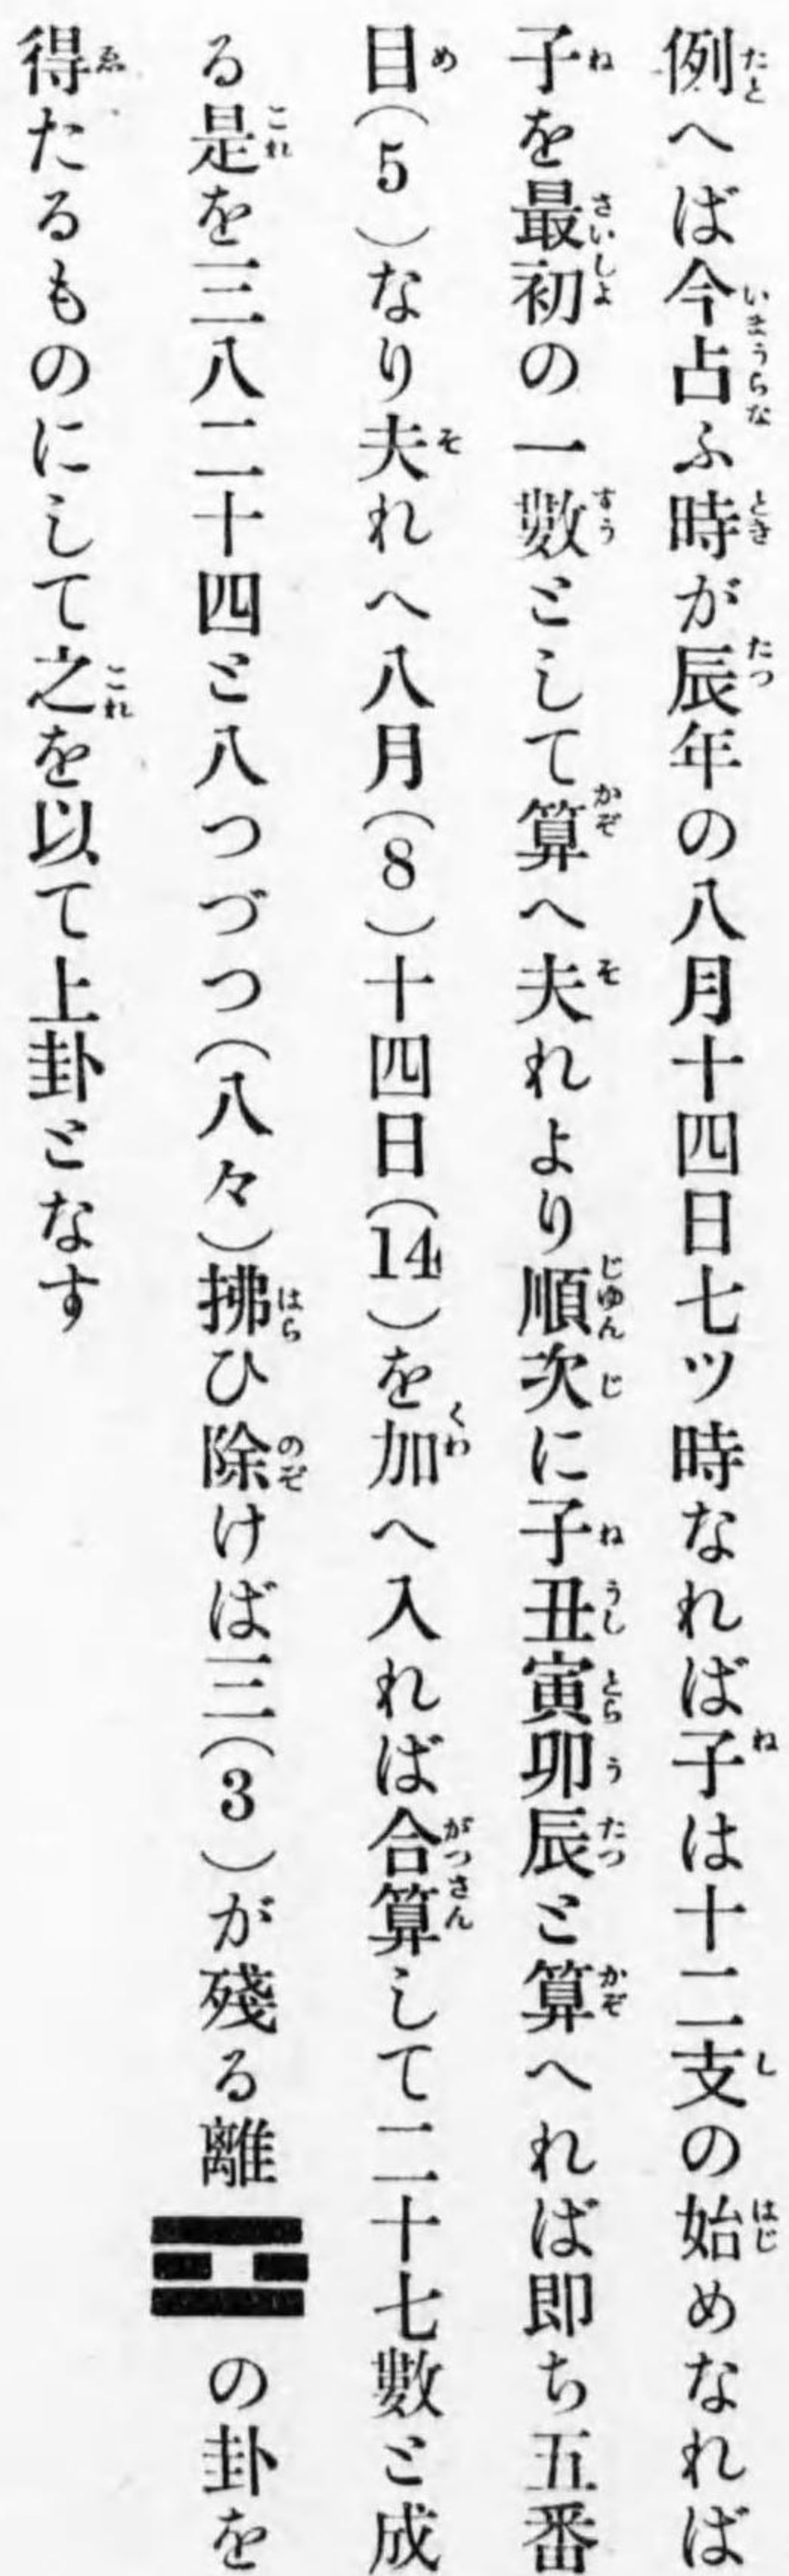 例へば今占ふ時が辰年の八月十四日七ツ時なれば子は十二支の始めなれば
子を最初の一數として算へ夫れより順次に子丑寅卯辰と算へれば即ち五番
目(5)なり夫れへ八月(8)十四日(14)を加へ入れば合算して二十七數と成
る是を三八二十四と八つづつ(八々)拂ひ除けば三(3)が殘る離☲の卦を
得たるものにして之を以て上卦となす